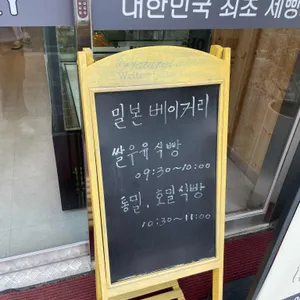 대한민국 최초 제빵
Natural
밀본 베이커리
쌀우유식빵
09:30~10:00
통밀, 호밀식빵
10:30~11:00